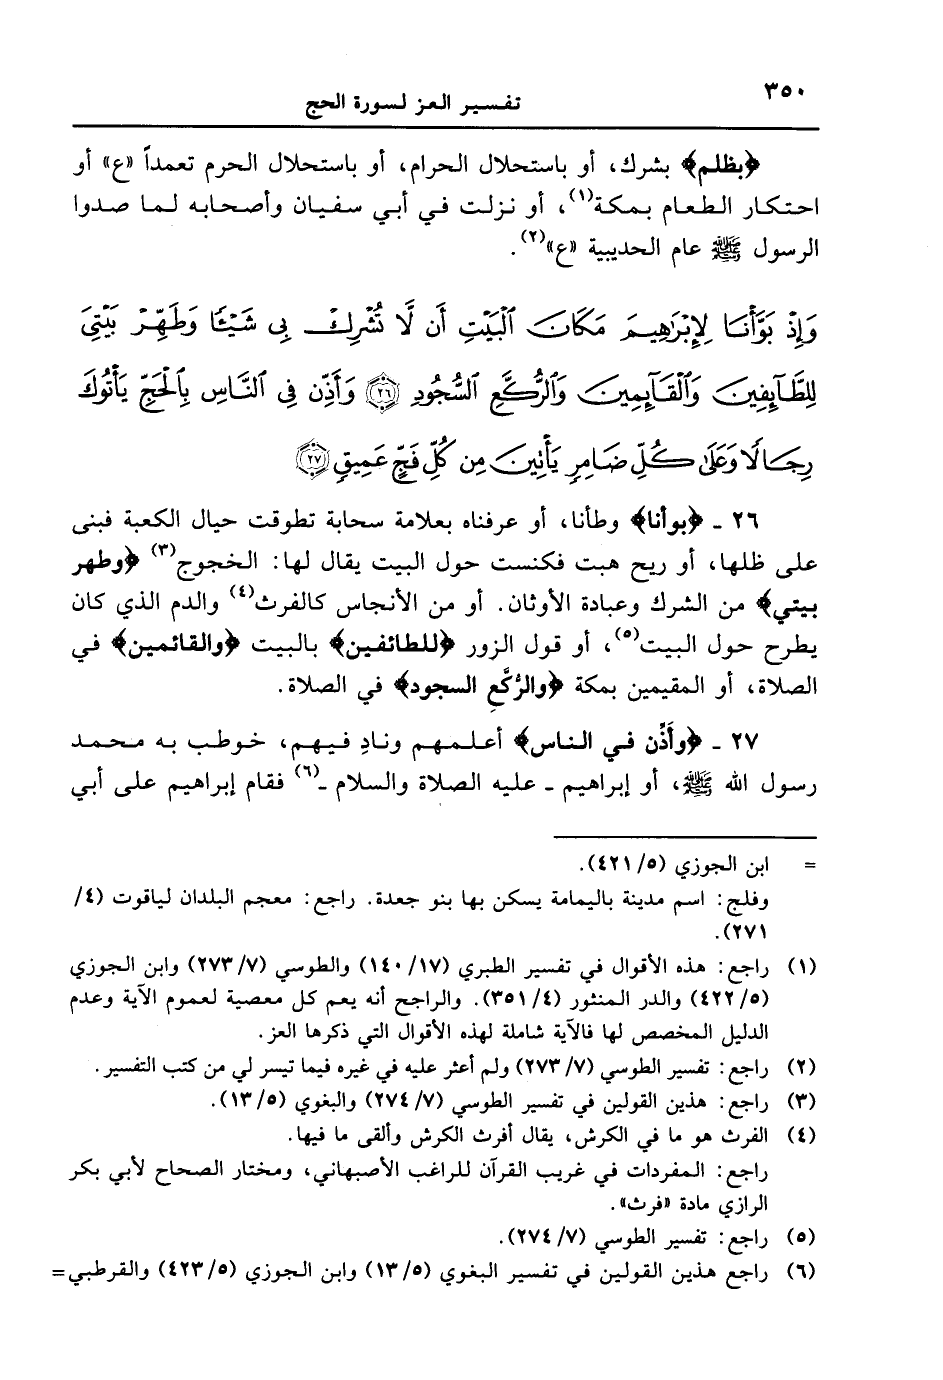 ٣٥٠
تفسير العز لسورة الحج
﴿بظلم﴾ بشرك، أو باستحلال الحرام، أو باستحلال الحرم تعمداً «ع» أو
احتكار الطعام بمكة(١)، أو نزلت في أبي سفيان وأصحابه لما صدوا
الرسول ﷺ عام الحديبية «ع»(٢).
وَإِذْ بَوَّأْنَا لِإِبْرَٰهِيمَ مَكَانَ ٱلْبَيْتِ أَن لَّا تُشْرِكْ بِى شَيْـًٔا وَطَهِّرْ بَيْتِىَ
لِلطَّآئِفِينَ وَٱلْقَآئِمِينَ وَٱلرُّكَّعِ ٱلسُّجُودِ ﴿٢٦﴾ وَأَذِّن فِى ٱلنَّاسِ بِٱلْحَجِّ يَأْتُوكَ
رِجَالًا وَعَلَىٰ كُلِّ ضَامِرٍ يَأْتِينَ مِن كُلِّ فَجٍّ عَمِيقٍ ﴿٢٧﴾
٢٦ ـ ﴿بوأنا﴾ وطأنا، أو عرفناه بعلامة سحابة تطوقت حيال الكعبة فبنى
على ظلها، أو ريح هبت فكنست حول البيت يقال لها: الخجوج(٣) ﴿وطهر
بيتي﴾ من الشرك وعبادة الأوثان. أو من الأنجاس كالفرث(٤) والدم الذي كان
يطرح حول البيت(٥)، أو قول الزور ﴿للطائفين﴾ بالبيت ﴿والقائمين﴾ في
الصلاة، أو المقيمين بمكة ﴿والرُّكَّعِ السجود﴾ في الصلاة.
٢٧ ـ ﴿وأَذِّن في الناس﴾ أعلمهم ونادِ فيهم، خوطب به محمد
رسول الله ﷺ، أو إبراهيم ـ عليه الصلاة والسلام ـ(٦) فقام إبراهيم على أبي
= ابن الجوزي (٤٢١/٥).
وفلج: اسم مدينة باليمامة يسكن بها بنو جعدة. راجع: معجم البلدان لياقوت (٤/
٢٧١).
(١) راجع: هذه الأقوال في تفسير الطبري (١٤٠/١٧) والطوسي (٢٧٣/٧) وابن الجوزي
(٤٢٢/٥) والدر المنثور (٣٥١/٤). والراجح أنه يعم كل معصية لعموم الآية وعدم
الدليل المخصص لها فالآية شاملة لهذه الأقوال التي ذكرها العز.
(٢) راجع: تفسير الطوسي (٢٧٣/٧) ولم أعثر عليه في غيره فيما تيسر لي من كتب التفسير.
(٣) راجع: هذين القولين في تفسير الطوسي (٢٧٤/٧) والبغوي (١٣/٥).
(٤) الفرث هو ما في الكرش، يقال أفرث الكرش وألقى ما فيها.
راجع: المفردات في غريب القرآن للراغب الأصبهاني، ومختار الصحاح لأبي بكر
الرازي مادة «فرث».
(٥) راجع: تفسير الطوسي (٢٧٤/٧).
(٦) راجع هذين القولين في تفسير البغوي (١٣/٥) وابن الجوزي (٤٢٣/٥) والقرطبي=